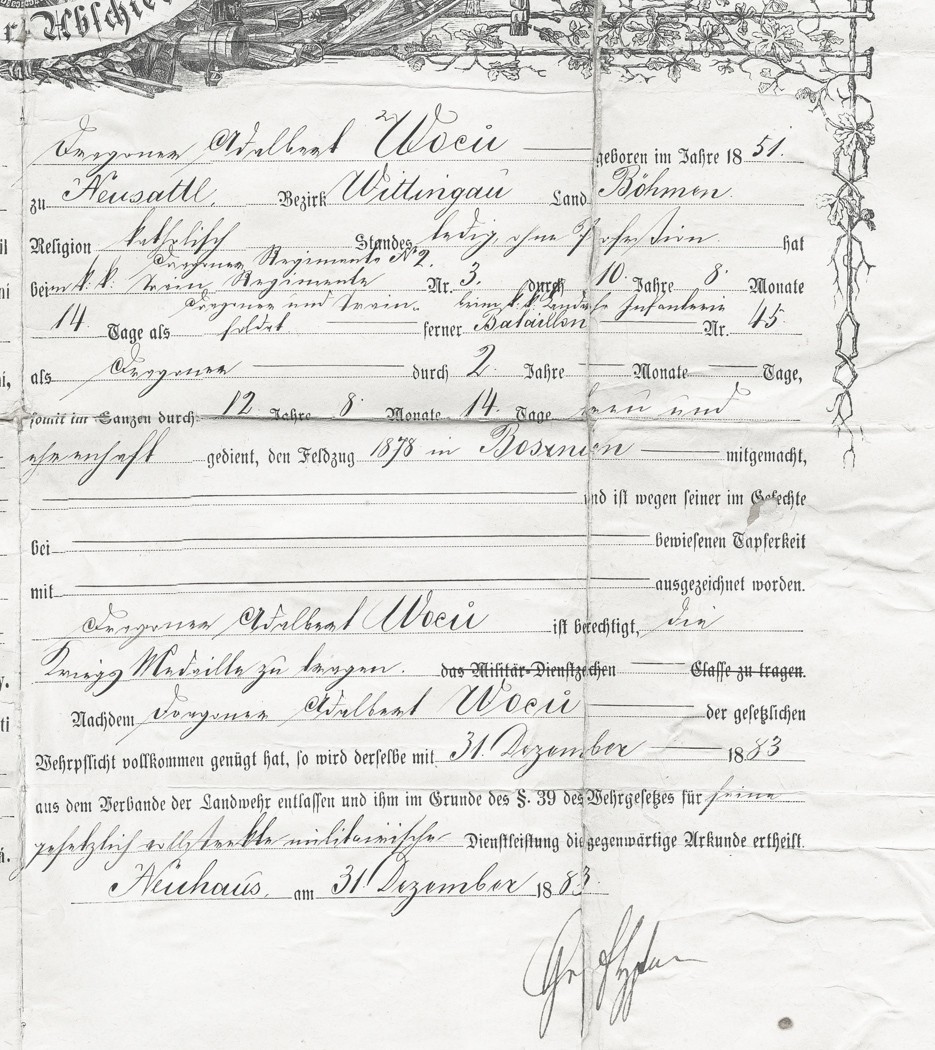 r Abschied
Dragoner Adalbert Woců geboren im Jahre 1851.
zu Neusattl, Bezirk Wittingau Land Böhmen
Religion katholisch Standes ledig, ohne Profession hat
Dragoner Regimente No 2.
beim k. k. Train Regimente Nr. 3. durch 10 Jahre 8 Monate
Dragoner und Train- beim k. k. Infanterie
14 Tage als soldat ferner Bataillon Nr. 45
als Dragoner durch 2 Jahre Monate Tage,
somit im Ganzen durch 12 Jahre 8 Monate 14 Tage treu und
ehrenhaft gedient, den Feldzug 1878 in Bosznien mitgemacht,
und ist wegen seiner im Gefechte
bei bewiesenen Tapferkeit
mit ausgezeichnet worden.
Dragoner Adalbert Woců ist berechtigt, die
Kriegs Medaille zu tragen. das Militär-Dienstzeichen Classe zu tragen.
Nachdem Dragoner Adalbert Woců der gesetzlichen
Wehrpflicht vollkommen genügt hat, so wird derselbe mit 31. Dezember 1883
aus dem Verbande der Landwehr entlassen und ihm im Grunde des §. 39 des Wehrgesetzes für seine
gesetzlich vollstreckte militairische Dienstleistung die gegenwärtige Urkunde ertheilt.
Neuhaus, am 31. Dezember 1883.